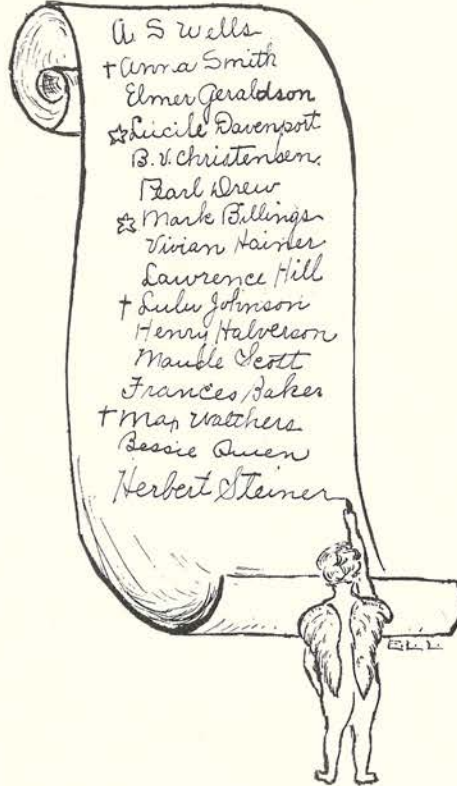 A. S Wells
†Anna Smith
Elmer Geraldson
☆Lucile Davenport
B.V. Christensen.
Pearl Drew
☆Mark Billings
Vivian Hainer
Lawrence Hill
†Lulu Johnson
Henry Halverson
Maude Scott
Frances Baker
†Max Watchers
Bessie Owen
Herbert Steiner